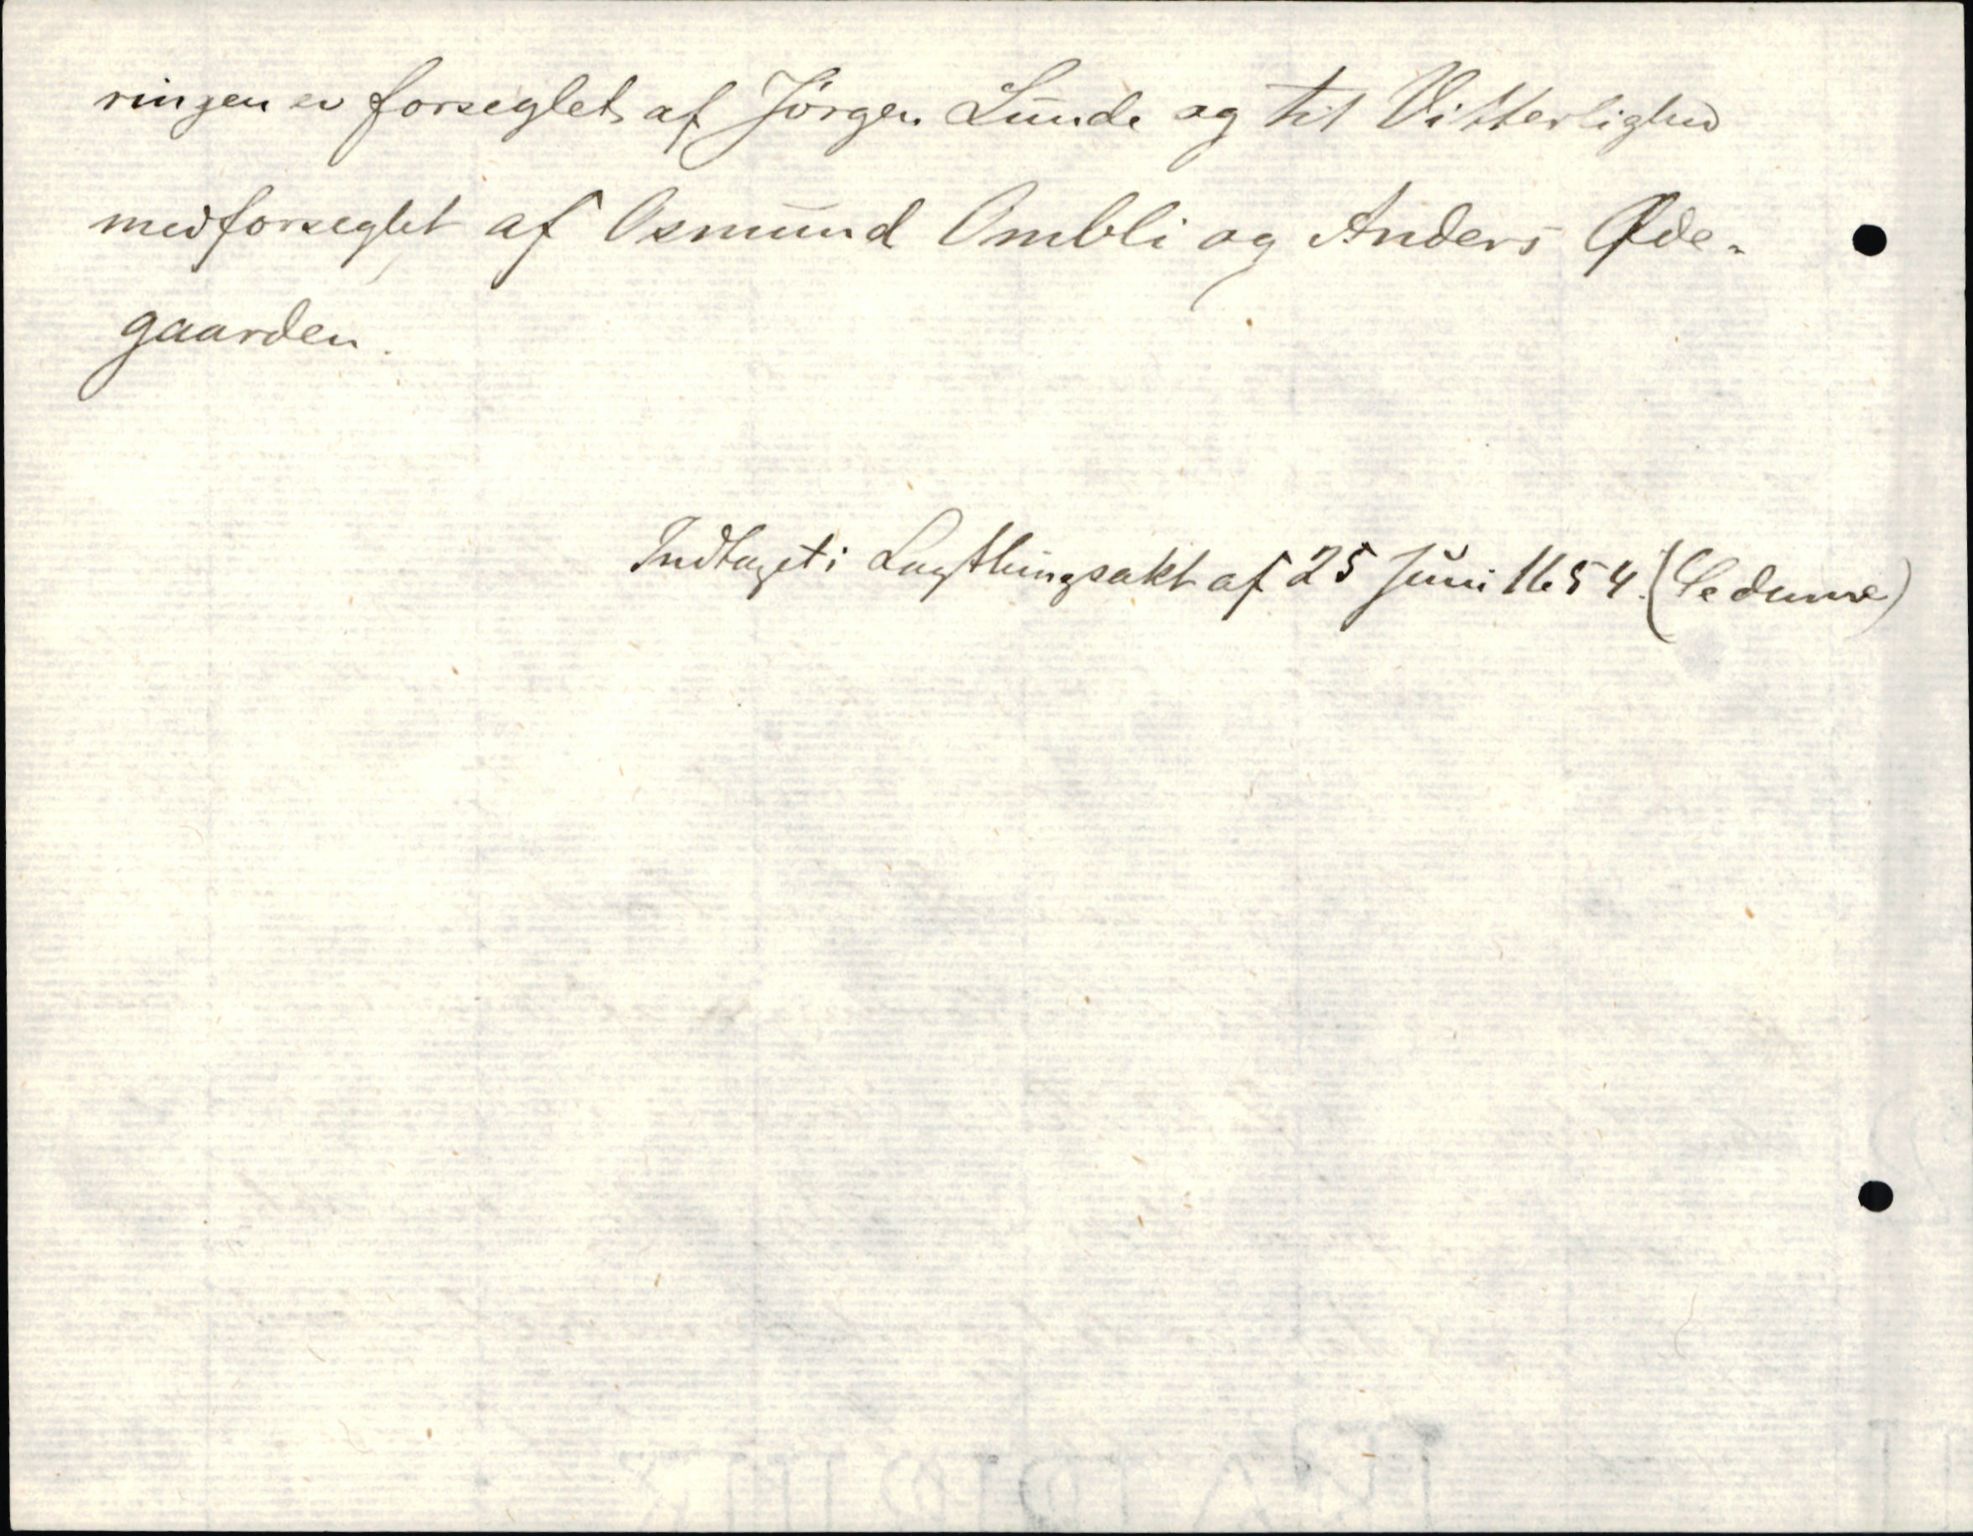 ringen er forseglet af Jörgen Lunde og til Vitterlighed
medforseglet af Osmund Ombli og Anders Øde-
gaarden.
Indtaget i Lagthingsakt af 25 Juni 1654.